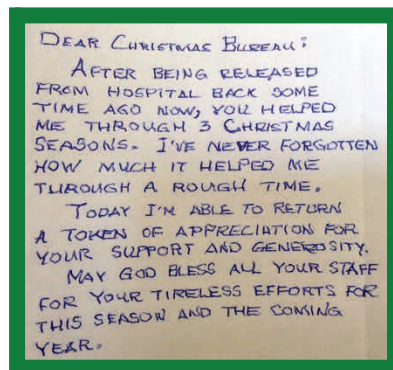 DEAR CHRISTMAS BUREAU:
AFTER BEING RELEASED
FROM HOSPITAL BACK SOME
TIME AGO NOW, YOU HELPED
ME THROUGH 3 CHRISTMAS
SEASONS. I'VE NEVER FORGOTTEN
HOW MUCH IT HELPED ME
THROUGH A ROUGH TIME.
TODAY I'M ABLE TO RETURN
A TOKEN OF APPRECIATION FOR
YOUR SUPPORT AND GENEROSITY.
MAY GOD BLESS ALL YOUR STAFF
FOR YOUR TIRELESS EFFORTS FOR
THIS SEASON AND THE COMING
YEAR.